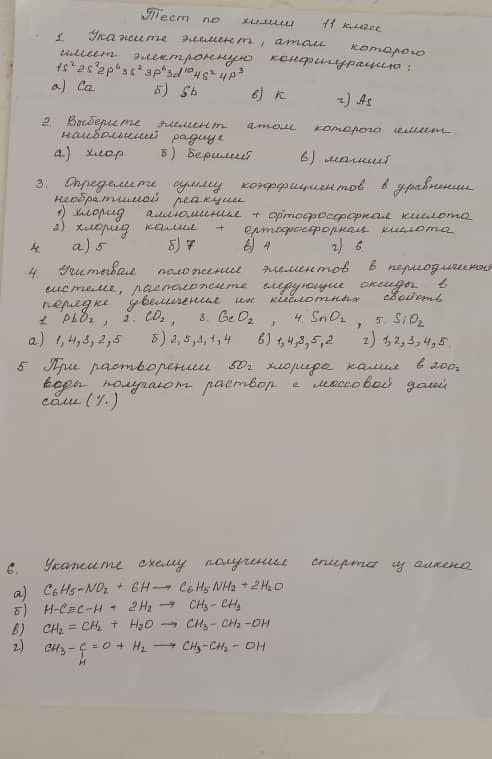 Тест по химии 11 класс
1. Укажите элемент, атом которого
имеет электронную конфигурацию:
1s² 2s² 2p⁶ 3s² 3p⁶ 3d¹⁰ 4s² 4p³
а) Ca б) Sb в) K г) As
2. Выберите элемент атом которого имеет
наибольший радиус
а) хлор б) Берилий в) магний
3. Определите сумму коэффициентов в уравнении
необратимой реакции
1) хлорид алюминия + ортофосфорная кислота
2) хлорид калия + ортофосфорная кислота
4. а) 5 б) 7 в) 4 г) 6
4. Учитывая положение элементов в периодической
системе, расположите следующие оксиды в
порядке увеличения их кислотных свойств
1. PbO₂, 2. CO₂, 3. GeO₂, 4. SnO₂, 5. SiO₂
а) 1,4,3,2,5 б) 2,5,3,1,4 в) 1,4,3,5,2 г) 1,2,3,4,5.
5 При растворении 50г хлорида калия в 200г
воды получают раствор с массовой долей
соли (%)
6. Укажите схему получения спирта из алкена
а) C₆H₅-NO₂ + 6H → C₆H₅NH₂ + 2H₂O
б) H-C≡C-H + 2H₂ → CH₃-CH₃
в) CH₂=CH₂ + H₂O → CH₃-CH₂-OH
г) CH₃-C=O + H₂ → CH₃-CH₂-OH
H